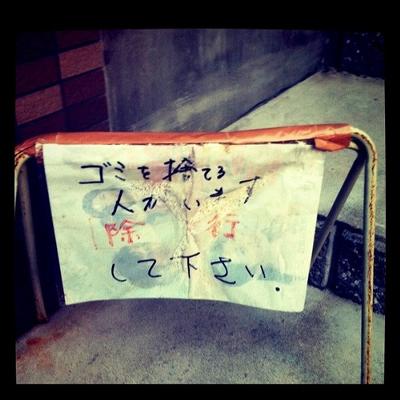 ゴミを捨てる
人がいます
除 行
して下さい.